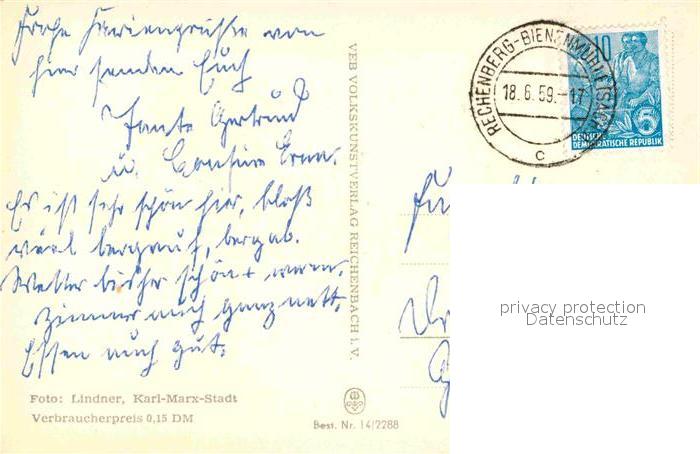 Frohe Feriengrüsse von
hier senden Euch
Tante Gertrud
u. Cousine Erna.
Es ist sehr schön hier, bloß
viel bergauf, bergab.
Wetter bisher schön + warm.
Zimmer auch ganz nett.
Essen auch gut.
Foto: Lindner, Karl-Marx-Stadt
Verbraucherpreis 0,15 DM
VEB VOLKSKUNSTVERLAG REICHENBACH I. V.
Best. Nr. 14/2288
RECHENBERG-BIENENMÜHLE (SACHS)
18.6.59.-17
c
10
5
DEUTSCHE
DEMOKRATISCHE REPUBLIK
privacy protection
Datenschutz